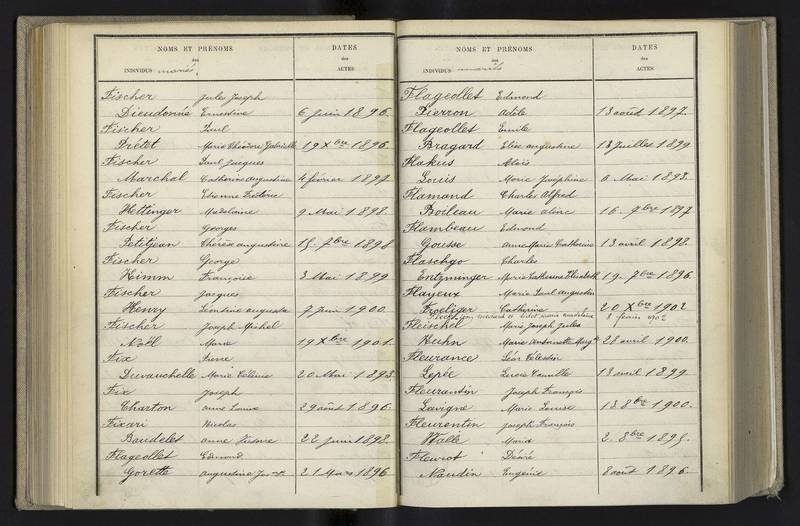 NOMS ET PRÉNOMS DATES
des des
INDIVIDUS mariés ACTES
Fischer Jules Joseph
Dieudonné Ernestine 6 Juin 1896.
Fischer Paul
Diétet Marie Théodore Gabrielle 19 Xbre 1896.
Fischer Paul Jacques
Marchal Catherine Augustine 4 février 1897.
Fischer Etienne Frédéric
Hettinger Madeleine 9 Mai 1898.
Fischer Georges
Petitjean Thérèse augustine 15. 7bre 1898
Fischer George
Himm Françoise 3 Mai 1899.
Fischer Jacques
Henry Léontine augusta 7 Juin 1900.
Fischer Joseph Michel
Noël Marie 19 Xbre 1901.
Fix Pierre
Duvauchelle Marie Céline 20 Mai 1893.
Fix Joseph
Charton anne Louise 29 août 1896.
Fixari Nicolas
Baudelet anne 22 Juin 1898.
Flageollet Edmond
Gorette augustine 21 Mars 1896
NOMS ET PRÉNOMS DATES
des des
INDIVIDUS mariés ACTES
Flageollet Edmond
Pierron Adèle 13 août 1897.
Flageollet Emile
Bragard Elise augustine 13 Juillet 1899
Flakus Aloïs
Louis Marie Joséphine 6 Mai 1893.
Flamand Charles Alfred
Boileau Marie aline 16. 9bre 1897
Flambeau Edmond
Gousse anne Marie Catherine 13 avril 1898.
Flaschgo Charles
Entzminger Marie Catherine Elisabeth 19. 7bre 1896.
Flayeux Marie Paul Augustin
Froeliger Catherine 20 Xbre 1902
marie madeleine 8 février 1902
Fleischel Marie Joseph Jules
Huhn Marie Antoinette Marg 28 avril 1900.
Fleurance Léon Célestin
Lepée Lucie Camille 13 avril 1899.
Fleurantin Joseph François
Lavigne Marie Louise 13 8bre 1900.
Fleurentin Joseph François
Wallé Maria 2. 8bre 1895.
Fleurot Désiré
Naudin Eugénie 8 août 1896.